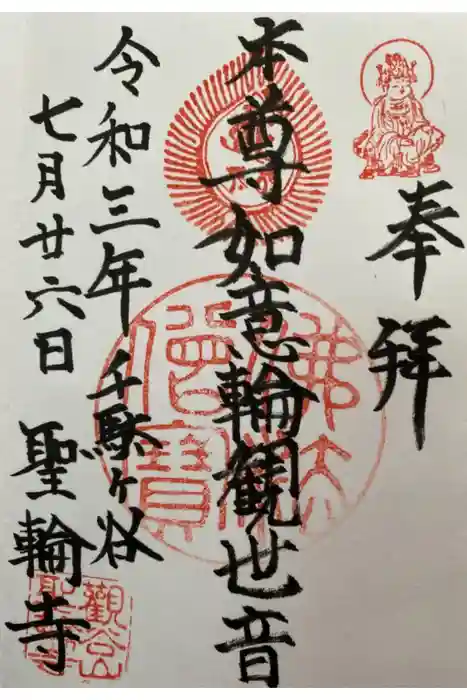 奉拝
本尊如意輪観世音
令和三年 千駄ヶ谷
七月廿六日 聖輪寺
佛法僧寳
觀谷山
聖輪寺